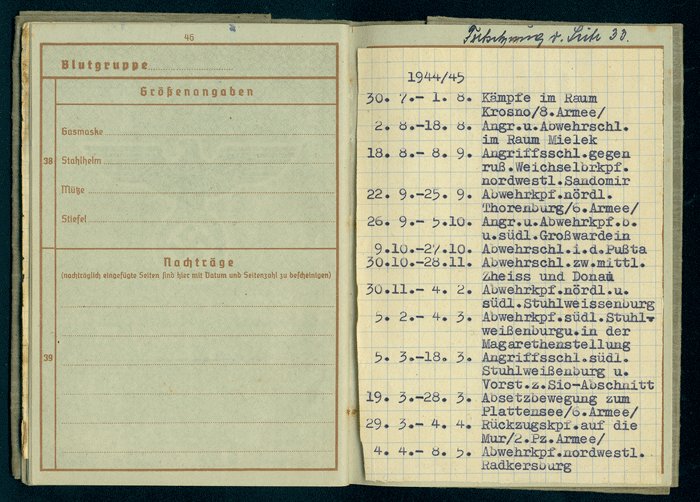 46
Blutgruppe
Größenangaben
Gasmaske
38 Stahlhelm
Mütze
Stiefel
Nachträge
(nachträglich eingefügte Seiten sind hier mit Datum und Seitenzahl zu bescheinigen)
39
Fortsetzung v. Seite 38.
1944/45
30. 7.- 1. 8. Kämpfe im Raum
Krosno/8.Armee/
2. 8.-18. 8. Angr.u.Abwehrschl.
im Raum Mielek
18. 8.- 8. 9. Angriffsschl.gegen
ruß.Weichselbrkpf.
nordwestl.Sandomir
22. 9.-25. 9. Abwehrkpf.nördl.
Thorenburg/6.Armee/
26. 9.- 5.10. Angr.u.Abwehrkpf.b.
u.südl.Großwardein
9.10.-27.10. Abwehrschl.i.d.Pußta
30.10.-28.11. Abwehrschl.zw.mittl.
Zheiss und Donau
30.11.- 4. 2. Abwehrkpf.nördl.u.
südl.Stuhlweissenburg
5. 2.- 4. 3. Abwehrkpf.südl.Stuhl-
weißenburgu.in der
Magarethenstellung
5. 3.-18. 3. Angriffsschl.südl.
Stuhlweißenburg u.
Vorst.z.Sio-Abschnitt
19. 3.-28. 3. Absetzbewegung zum
Plattensee/6.Armee/
29. 3.- 4. 4. Rückzugskpf.auf die
Mur/2.Pz.Armee/
4. 4.- 8. 5. Abwehrkpf.nordwestl.
Radkersburg